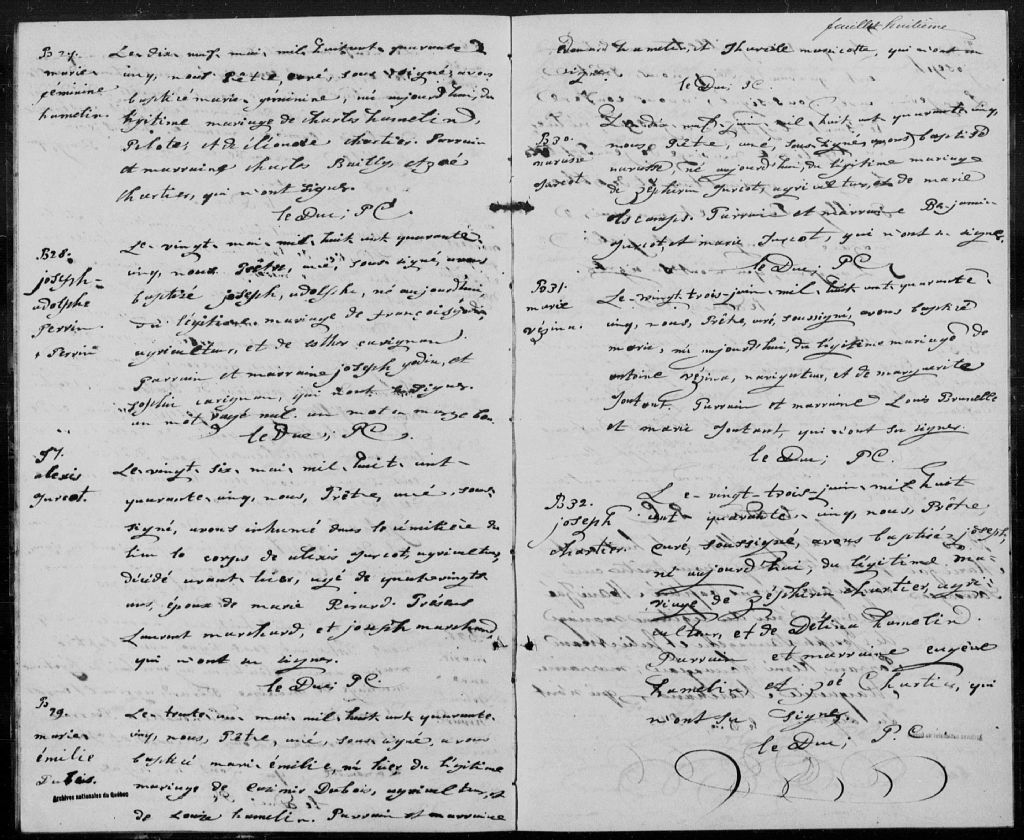 B 27.
marie
féminine
hamelin
Le dix neuf mai mil huitcent quarante
cinq, nous Prêtre, curé, sous signé, avons
baptisé marie féminine, née aujourd'hui, du
légitime mariage de charles hamelin,
Pilote, et de éléonore chartier. Parrain
et marraine charles Bailly, et zoé
chartier, qui n'ont signer.
le Duc; P.C.
B28.
joseph-
adolphe
Perrin
Perrin
Le vingt mai mil huit cent quarante
cinq, nous Prêtre, curé, sous signé, avons
baptisé joseph, adolphe, né aujourd'hui,
du légitime mariage de françois
agriculteur, et de esther carignan.
Parrain et marraine joseph godin, et
sophie carignan, qui signer.
un mot rayé nul. un mot en marge bon.
le Duc; P.C.
S
alexis
turcot.
Le vingt six mai mil huit cent
quarante cinq, nous, Prêtre, curé, sous-
signé, avons inhumé dans le cimitière du
lieu le corps de alexis turcot, agriculteur,
décédé avant hier, agé de quatrevingts
ans, époux de marie Perard. Présens
Laurent marchand, et joseph marchand,
qui n'ont su signer.
le Duc; P.C.
B
29.
marie
émilie
Dubois.
Le trente un mai mil huit cent quarante
cinq, nous, Prêtre, curé, sous signé, avons
baptisé marie émilie, née hier du légitime
mariage de casimir Dubois, agriculteur, et
de Louise hamelin. Parrain et marraine
Archives nationales du Québec
feuillet huitième
Edouard hamelin, et Tharsille maricotte, qui n'ont su
signer
le Duc; P.C.
B30.
narcisse
turcot
Le dix neuf juin mil huit cent quarante cinq,
nous Prêtre, curé, sous signé, avons baptisé
narcisse, né aujourd'hui, du légitime mariage
de zéphirin turcot, agriculteur, et de marie
Descamps. Parrain et marraine Benjamin
turcot et marie turcot, qui n'ont su signer.
le Duc; P.C.
B31.
marie
vézina.
Le vingt-trois juin mil huit cent quarante
cinq, nous, Prêtre, curé, soussigné, avons baptisé
marie, née aujourd'hui, du légitime mariage de
antoine vézina, navigateur, et de marguerite
Toutant. Parrain et marraine Louis Brunelle
et marie Toutant, qui n'ont su signer.
le Duc; P.C.
B32.
joseph
chartier.
Le vingt-trois juin mil huit
cent quarante cinq, nous, Prêtre,
curé, soussigné, avons baptisé joseph,
né aujourd'hui, du légitime ma-
riage de zéphirin chartier, agri-
culteur, et de Délina hamelin.
Parrain et marraine eugène
hamelin, et zoé Chartier, qui
n'ont su signer.
le Duc; P.C.